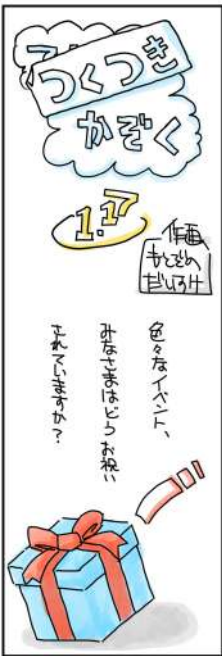 つくつき
かぞく
1.17
作画
もとぞの
だいすけ
色々なイベント、
みなさまはどう お祝い
されていますか？